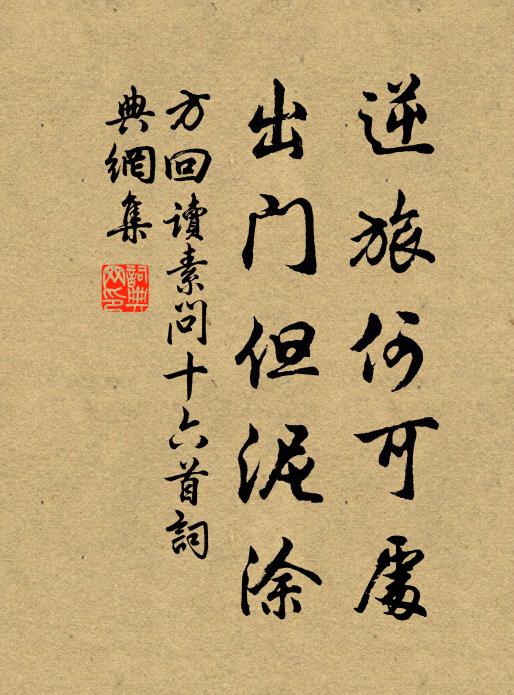 逆旅何可處
出門但泥涂
方回讀素問十六首詞
典網集
詞典
网印